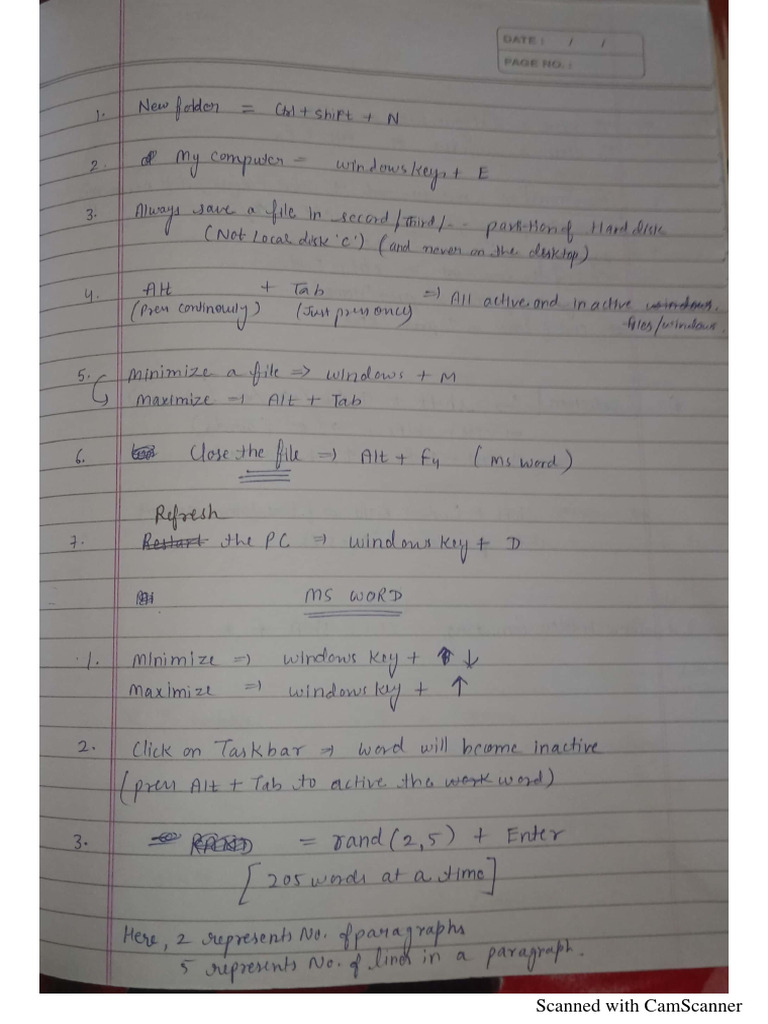 DATE : / /
PAGE NO. :
1. New folder = Ctrl + Shift + N
2. My computer = windows key + E
3. Always save a file in second/third/-- partition of Hard disk
(Not Local disk 'C') (and never on the desktop)
4. Alt + Tab => All active and inactive windows.
(Press continously) (Just press once) files/window.
5. Minimize a file => windows + M
Maximize => Alt + Tab
6. Close the file => Alt + F4 (MS word)
Refresh
7. Restart the PC => windows key + D
MS WORD
1. Minimize => windows key + ↓
Maximize => windows key + ↑
2. Click on Taskbar => word will become inactive
(press Alt + Tab to active the work word)
3. = rand(2,5) + Enter
[205 words at a time]
Here, 2 represents No. of paragraphs
5 represents No. of lines in a paragraph.
Scanned with CamScanner